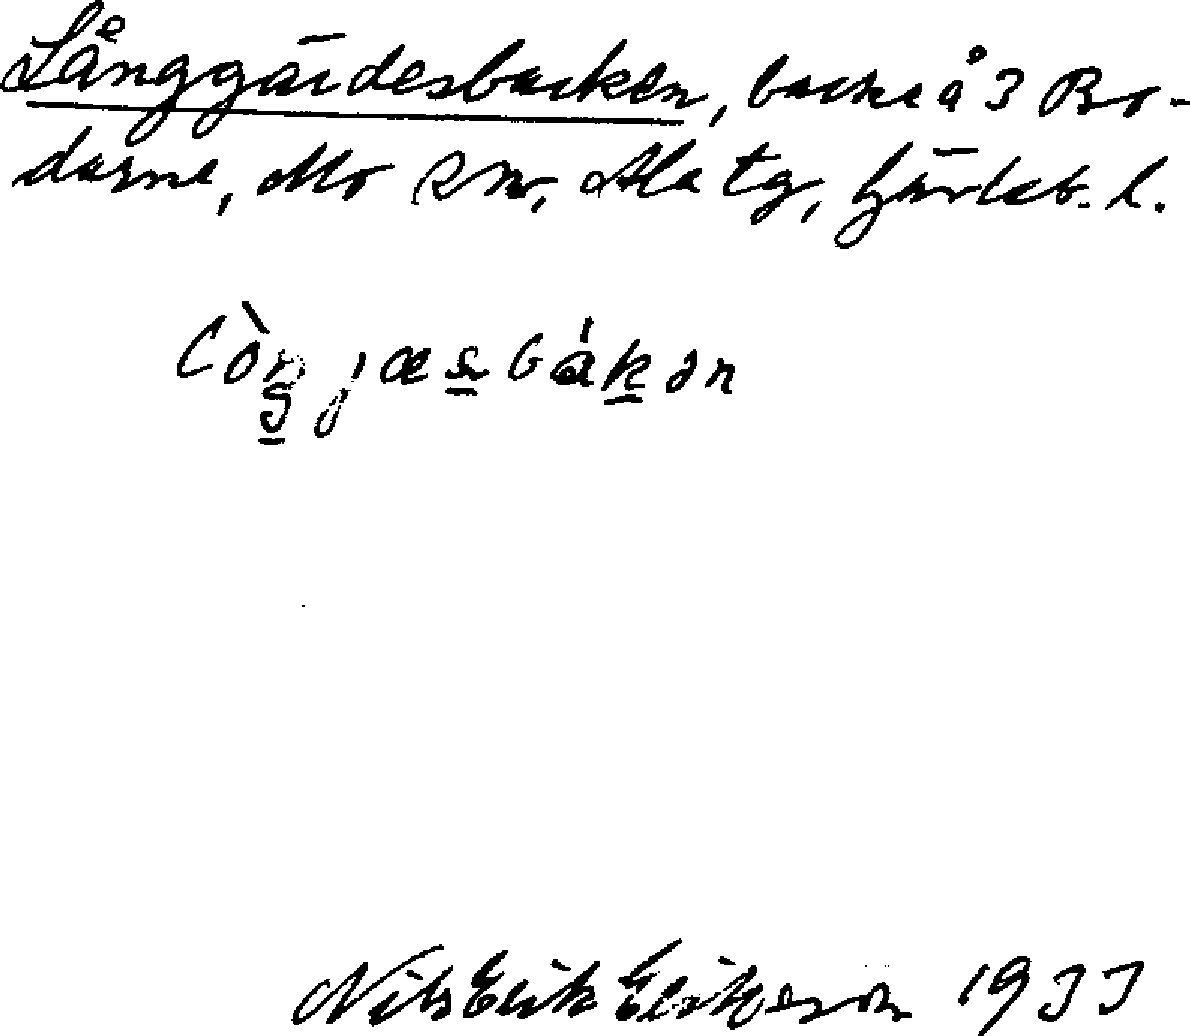 Långgärdesbacken, backe å 3 Bo-
darne, Mo sn, Ala tg, Gävleb. l.
lòŋjæsbákən
Nils Erik Eriksson 1933